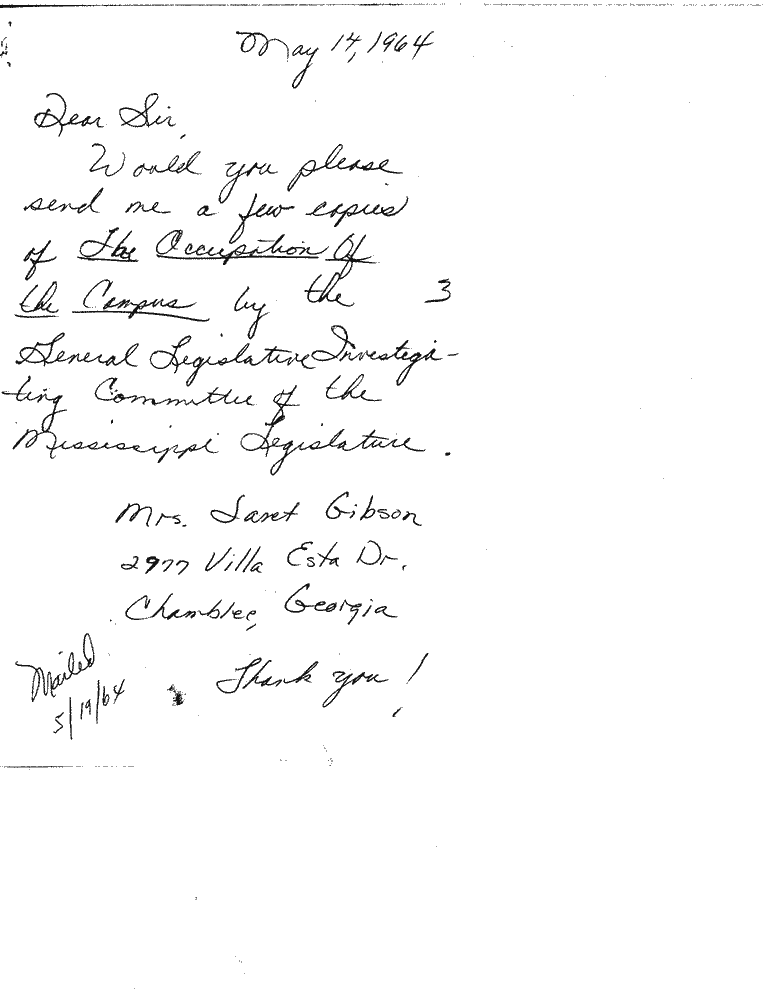 May 14, 1964
Dear Sir,
Would you please
send me a few copies
of The Occupation Of
the Campus by the 3
General Legislative Investiga-
ting Committee of the
Mississippi Legislature.
Mrs. Janet Gibson
2977 Villa Esta Dr.
Chamblee, Georgia
Thank you!
Mailed
5/19/64